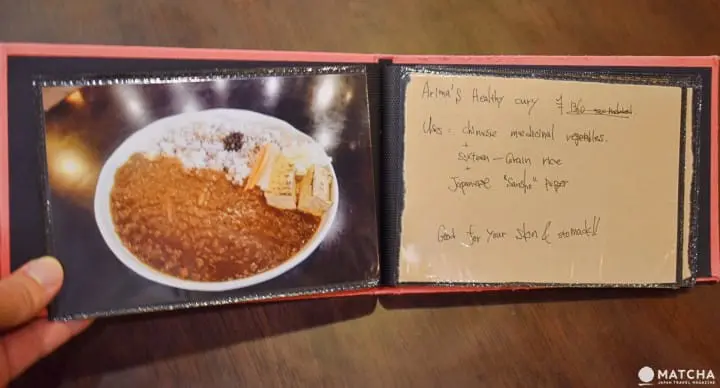 Arima's Healthy cury ¥
Uses = chinese medicinal vegetables.
+
sixteen - Grain rice
+
Japanese "Sansho" peper
Good for your skin & stomach!!
MATCHA
JAPAN TRAVEL MAGAZINE